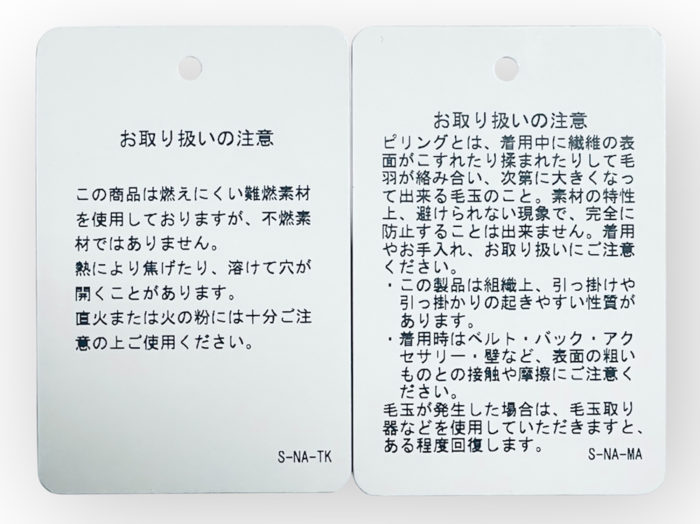 お取り扱いの注意
この商品は燃えにくい難燃素材
を使用しておりますが、不燃素
材ではありません。
熱により焦げたり、溶けて穴が
開くことがあります。
直火または火の粉には十分ご注
意の上ご使用ください。
S-NA-TK
お取り扱いの注意
ピリングとは、着用中に繊維の表
面がこすれたり揉まれたりして毛
羽が絡み合い、次第に大きくなっ
て出来る毛玉のこと。素材の特性
上、避けられない現象で、完全に
防止することは出来ません。着用
やお手入れ、お取り扱いにご注意
ください。
・この製品は組織上、引っ掛けや
引っ掛かりの起きやすい性質が
あります。
・着用時はベルト・バック・アク
セサリー・壁など、表面の粗い
ものとの接触や摩擦にご注意く
ださい。
毛玉が発生した場合は、毛玉取り
器などを使用していただきますと、
ある程度回復します。
S-NA-MA